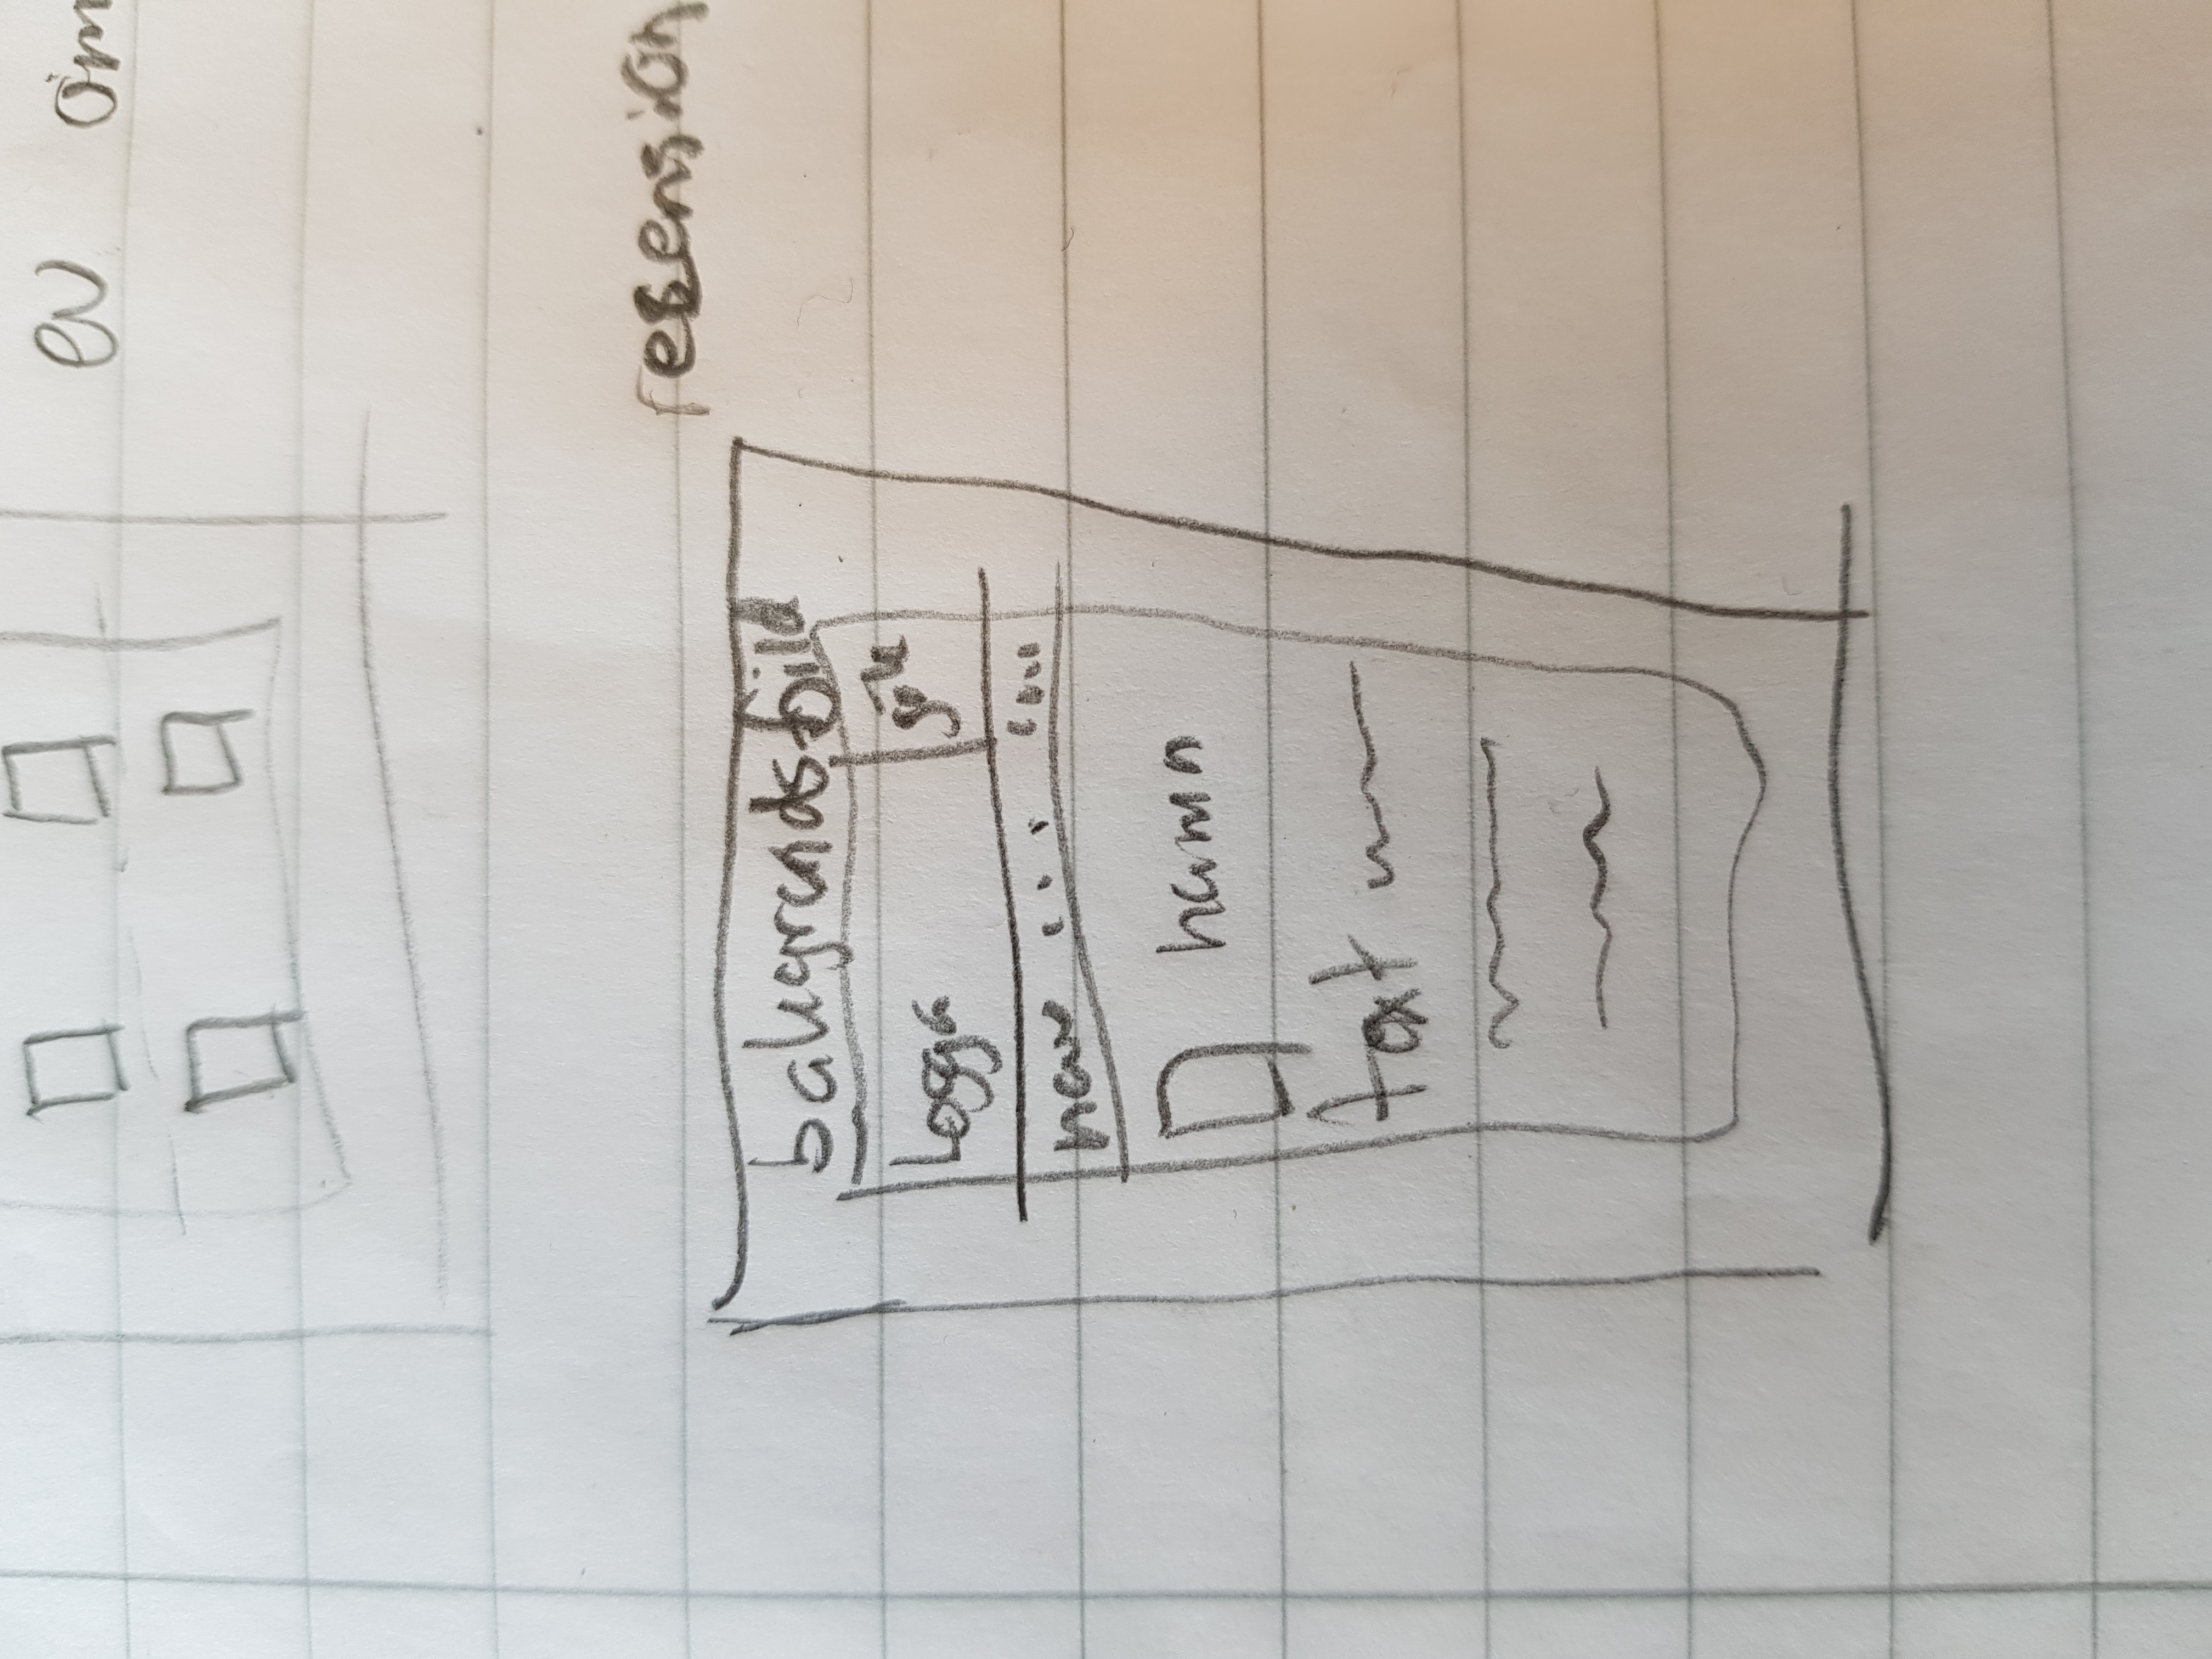 ev om
resension
bakgrundsbild
Logga sök
nav ... ....
namn
text